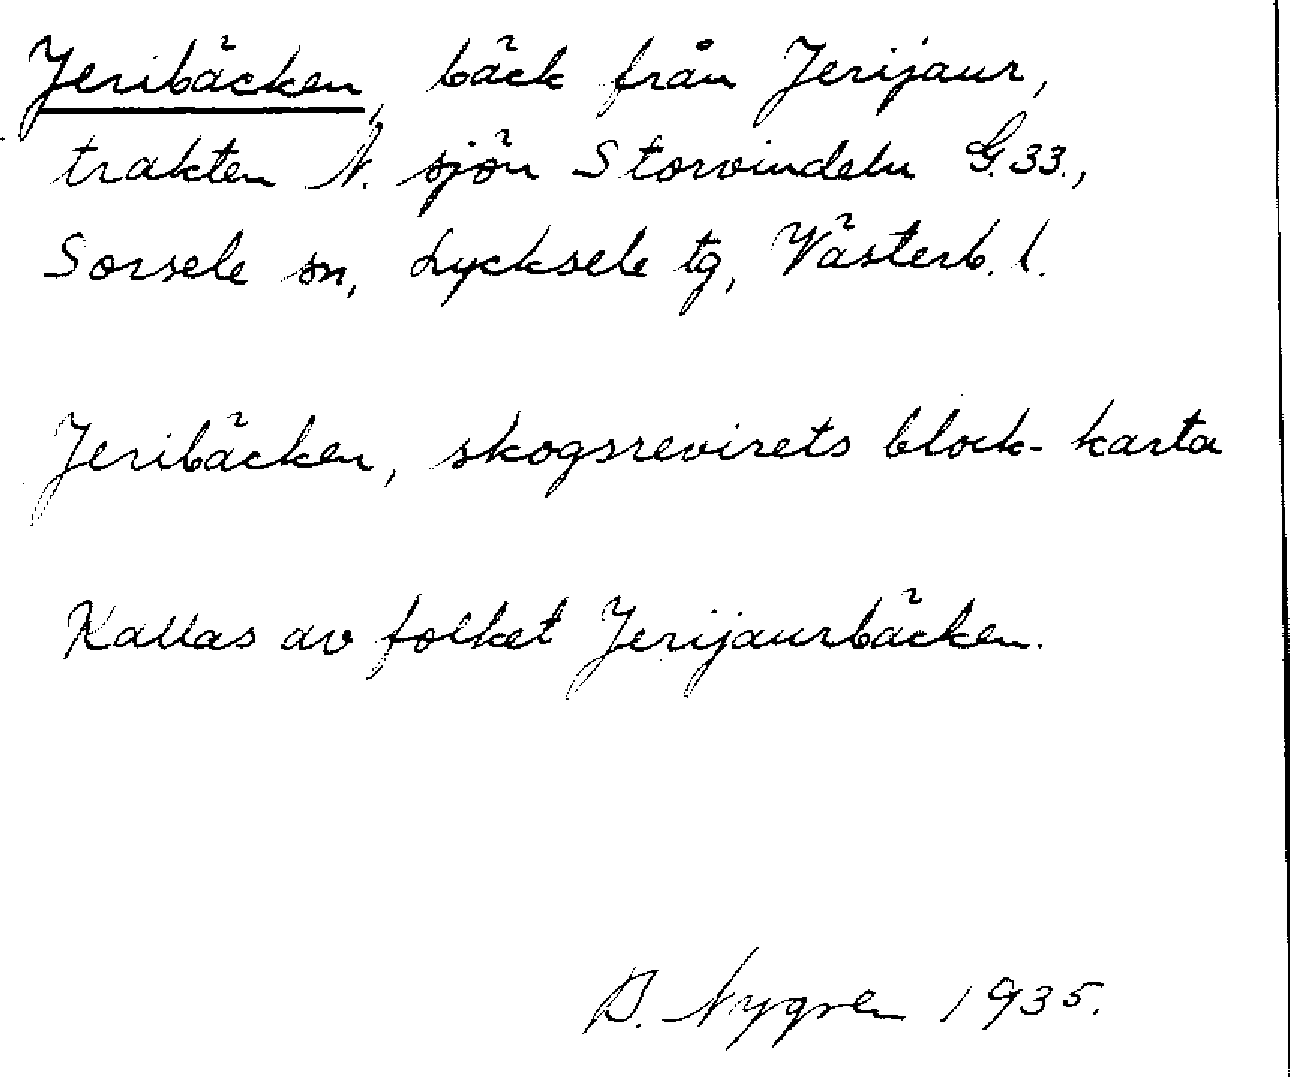 Jeribäcken, bäck från Jerijaur,
trakten N. sjön Storvindeln G.33.,
Sorsele sn, Lycksele tg, Västerb. l.
Jeribäcken, skogsrevirets block-karta
Kallas av folket Jerijaurbäcken.
B. Nygren 1935.